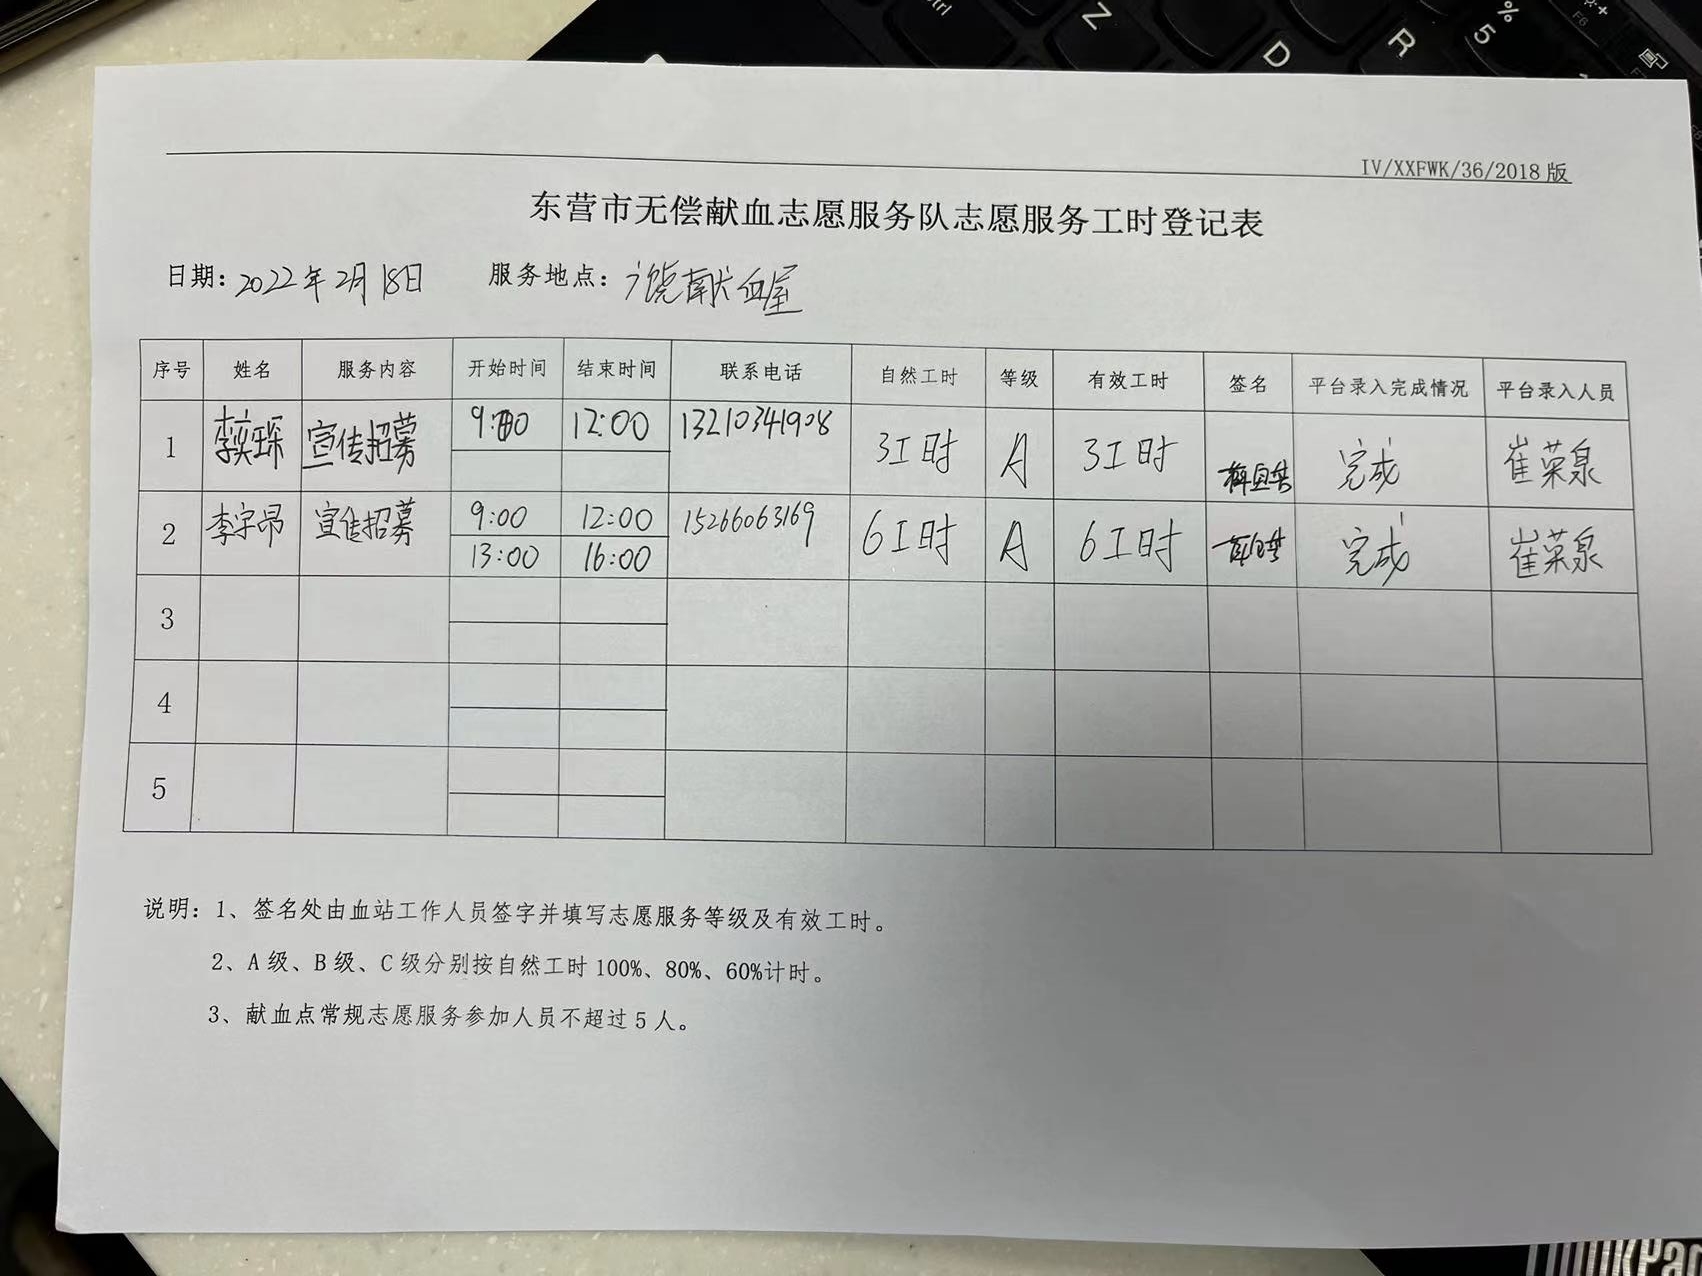 IV/XXFWK/36/2018 版
东营市无偿献血志愿服务队志愿服务工时登记表
日期: 2022年2月18日 服务地点: 广饶献血屋
序号 姓名 服务内容 开始时间 结束时间 联系电话 自然工时 等级 有效工时 签名 平台录入完成情况 平台录入人员
1 李奕琛 宣传招募 9:00 12:00 13210341908 3工时 A 3工时 完成 崔荣泉
2 李宇昂 宣传招募 9:00 12:00 15266063169 6工时 A 6工时 完成 崔荣泉
13:00 16:00
3
4
5
说明: 1、签名处由血站工作人员签字并填写志愿服务等级及有效工时。
2、A 级、B 级、C 级分别按自然工时 100%、80%、60%计时。
3、献血点常规志愿服务参加人员不超过 5 人。
Ctrl
Z
D
R
%
5
F6
ThinkPad